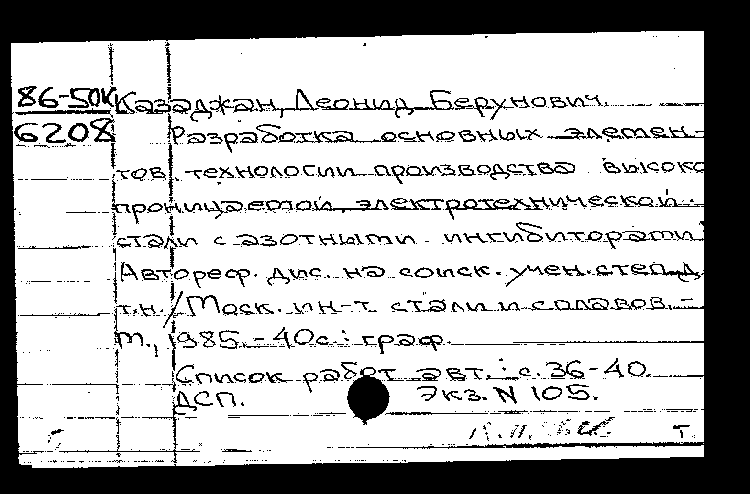 86-50к Казаджан, Леонид Берунович.
6208 Разработка основных элемен-
тов технологии производства высоко
проницаемой электротехнической
стали с азотными ингибиторами:
Автореф. дис. на соиск. учен. степ. д.
т.н. / Моск. ин-т стали и сплавов. -
М., 1985. - 40с.: граф.
Список работ авт.: с. 36-40.
ДСП. Экз. N 105.
Т.